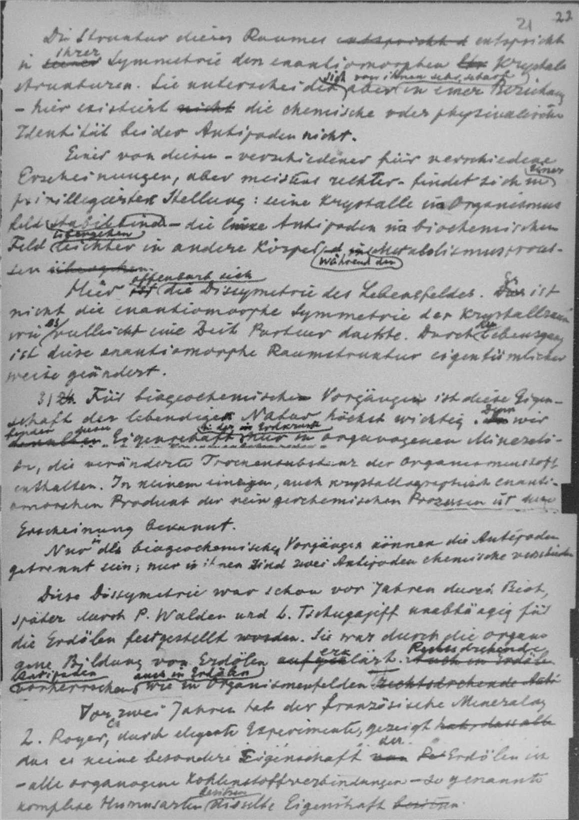 21 22
Die Struktur dieses Raumes entspricht d entspricht
in seiner ihrer Symmetrie den enantiomorphen Krystall
strukturen. Sie unterscheidet sich von ihnen sehr scharf aber in einer Beziehung
– hier existiert nicht die chemische oder physikalische
Identität beider Antipoden nicht.
Einer von diesen – verschiedener für verschiedene
Erscheinungen, aber meistens rechter – findet sich in einer
privilegierten Stellung: seine Krystalle im Organismus
feld stabil sind – die linke Antipoden im biochemischen
Feld übergehen leichter in andere Körper während der Metabolismusprozes-
sen übergehen.
Hier ist offenbart sich die Dissymetrie des Lebensfeldes. Sie ist
nicht die enantiomorphe Symmetrie der Krystallräume
wie es vielleicht eine Zeit Pasteur dachte. Durch die Lebensgang
ist diese enantiomorphe Raumstruktur eigentümlicher
weise geändert.
3) Für biogeochemischen Vorgängen ist diese Eigen-
schaft der lebendigen Natur höchst wichtig. Denn wir
Eigenschaft nur in organogenen Minerali-
en, die veränderte Trockensubstanz der Organismenstoff
enthalten. In keinem einzigen, auch krystallographisch enanti-
omorphen Produkt der rein geochemischen Prozessen ist diese
Erscheinung bekannt.
Nur des biogeochemische Vorgängen können die Antipoden
getrennt sein; nur in ihnen sind zwei Antipoden chemische verschieden
Diese Dissymetrie war schon vor Jahren durch Biot,
später durch P. Walden und L. Tschugajeff unabhängig für
die Erdölen festgestellt worden. Sie war durch die organo
gene Bildung von Erdölen erklärt. Rechtsdrehende
Antipoden vorherrschen auch in Erdölen wie in Organismenfelden
Vor zwei Jahren hat der französische Mineralog
L. Royer, durch elegante Experimente, gezeigt
das es keine besondere Eigenschaft der Erdölen ist
– alle organogene Kohlenstoffverbindungen – so genannte
komplexe Humusarten besitzen dieselbe Eigenschaft besitzen.